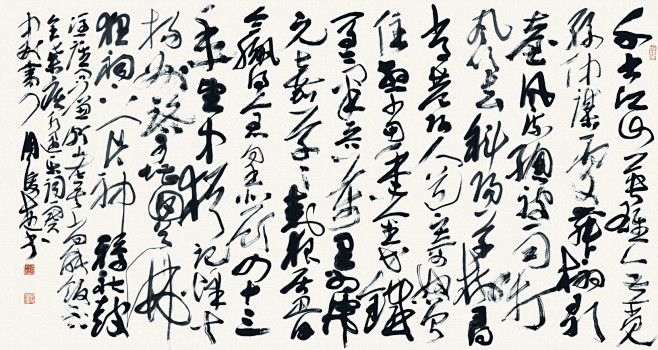 千古江山英雄无觅
孙仲谋处舞榭歌
台风流总被雨打
风吹去斜阳草树寻
常巷陌人道寄奴曾
住想当年金戈铁
马气吞万里如虎
元嘉草草封狼居胥
意赢得仓皇北顾四十三
年望中犹记烽火
扬州路可堪回首佛
狸祠下一片神鸦社鼓
凭谁问廉颇老矣尚能饭否
周俊杰书